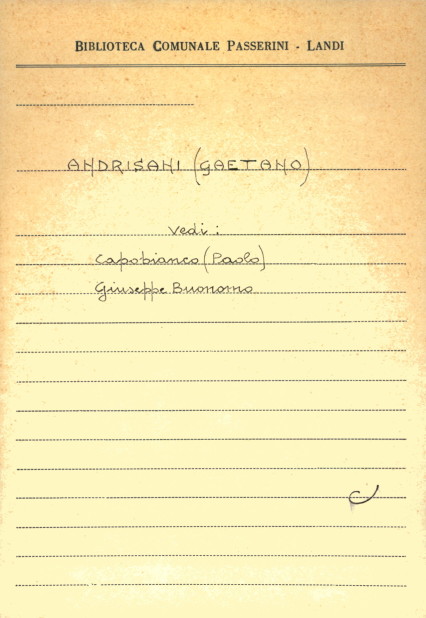 BIBLIOTECA COMUNALE PASSERINI - LANDI
ANDRISANI (GAETANO)
Vedi:
Capobianco (Paolo)
Giuseppe Buonomo